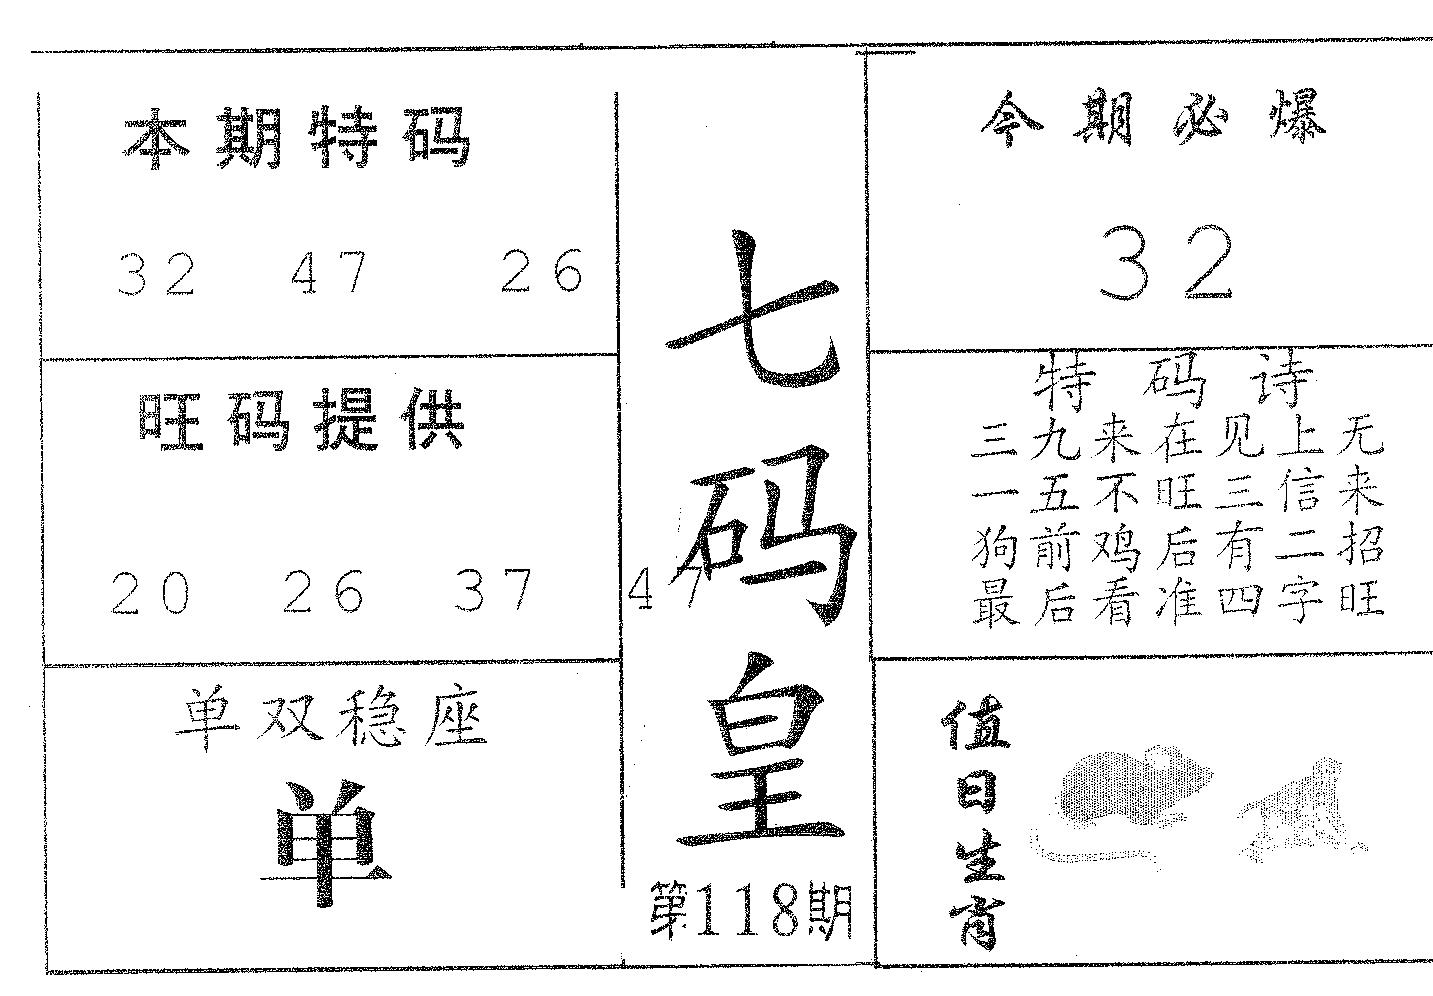 本期特码
32 47 26
旺码提供
20 26 37 47
单双稳座
单
七码皇
第118期
今期必爆
32
特码诗
三九来在见上无
一五不旺三信来
狗前鸡后有二招
最后看准四字旺
值日生肖